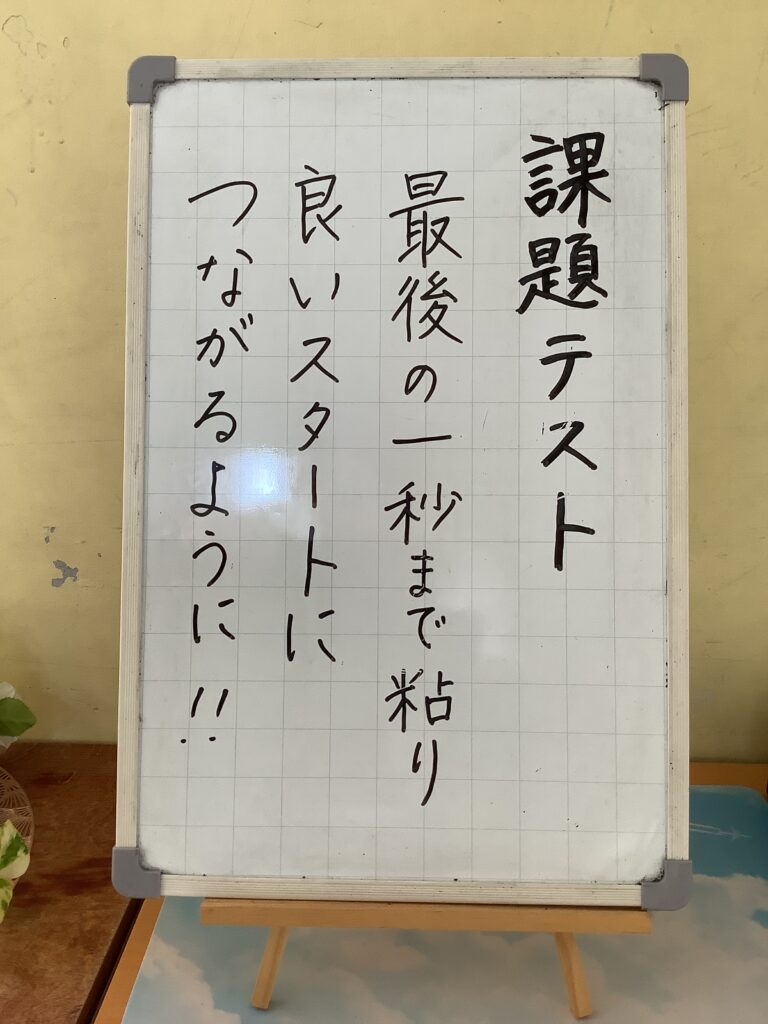 課題テスト
最後の一秒まで粘り
良いスタートに
つながるように!!